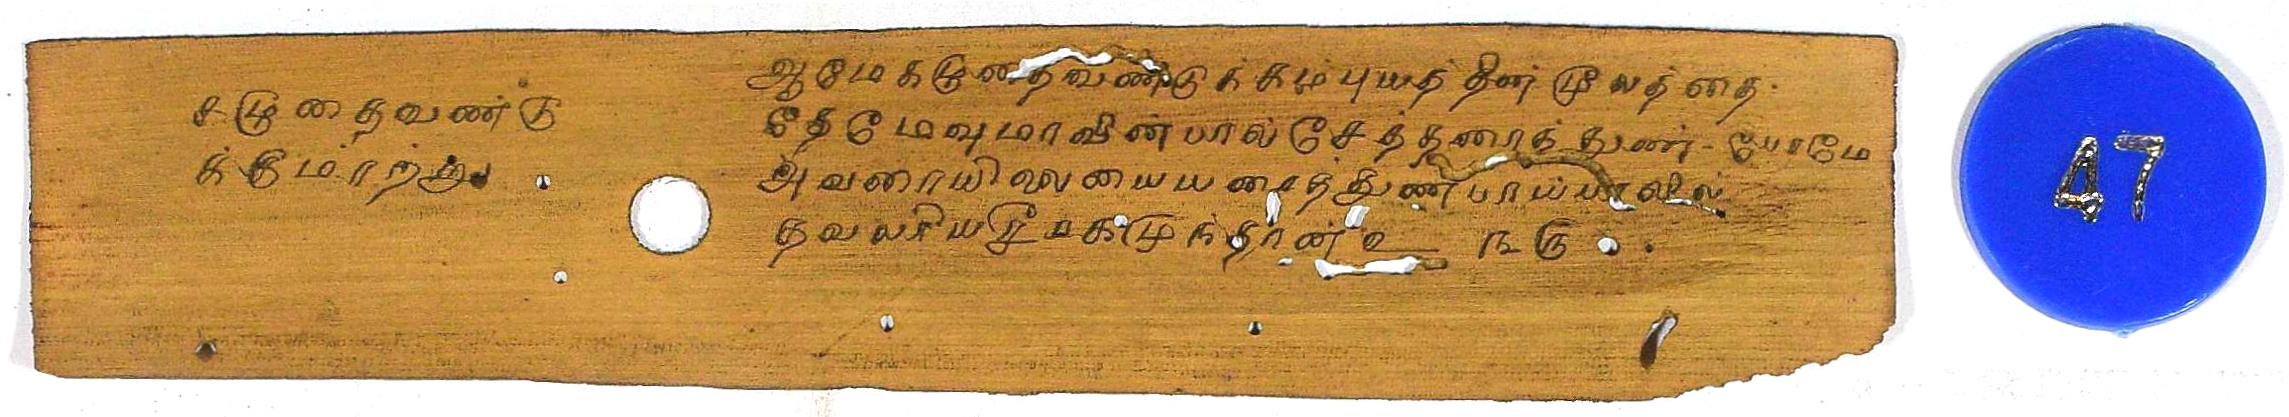 கழுதைவண்டு
க்குமாற்று
ஆமேகழுதைவண்டுக்கம்புயத்தின் மூலத்தை
தேமேவுமாவின்பால் சேத்தரைத்துண் - போமே
அவரையிலையையரைத்துண்பாய்
தவலரிய மகிழுந்தான் உ ௩௫
47